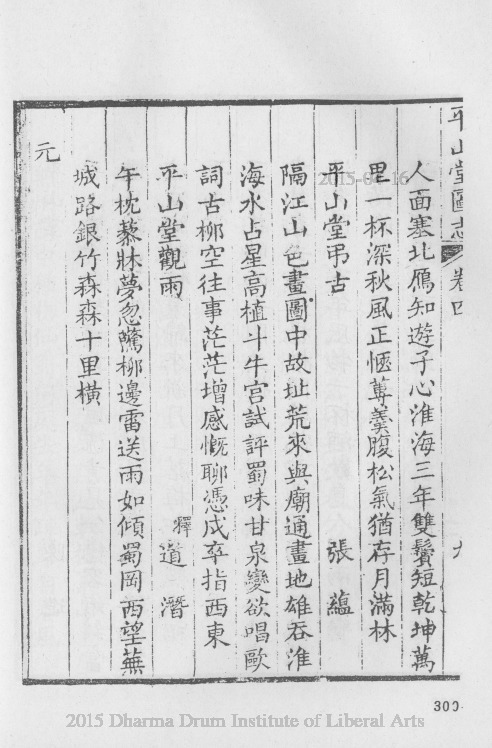 平山堂圖志 卷四 九
人面塞北鴈知遊子心淮海三年雙鬢短乾坤萬
里一杯深秋風正愜蓴羹腹松氣猶存月滿林
平山堂弔古 張蘊
隔江山色畫圖中故址荒來與廟通畫地雄吞淮
海水占星高植斗牛宮試評蜀味甘泉變欲唱歐
詞古柳空往事茫茫增感慨聊憑戍卒指西東
平山堂觀雨 釋道潛
午枕藜牀夢忽驚柳邊雷送雨如傾蜀岡西望蕪
城路銀竹森森十里橫
元
2015-04-16
300
2015 Dharma Drum Institute of Liberal Arts